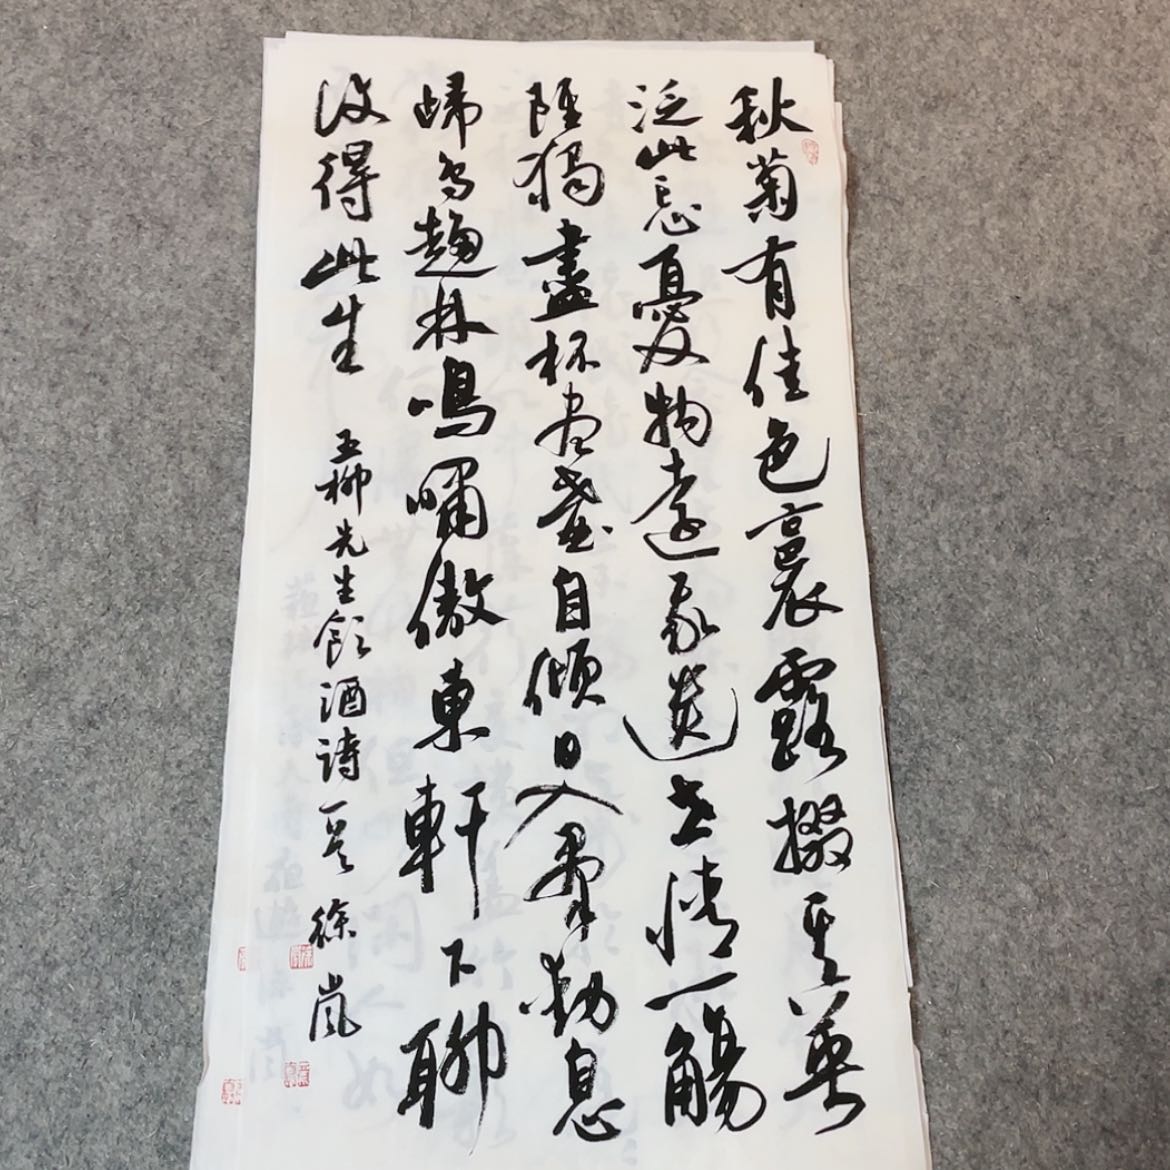 秋菊有佳色裛露掇其英
泛此忘憂物遠我遺世情一觴
雖獨盡杯盡壺自傾日入羣動息
歸鳥趨林鳴嘯傲東軒下聊
復得此生
五柳先生飲酒詩一首 徐嵐